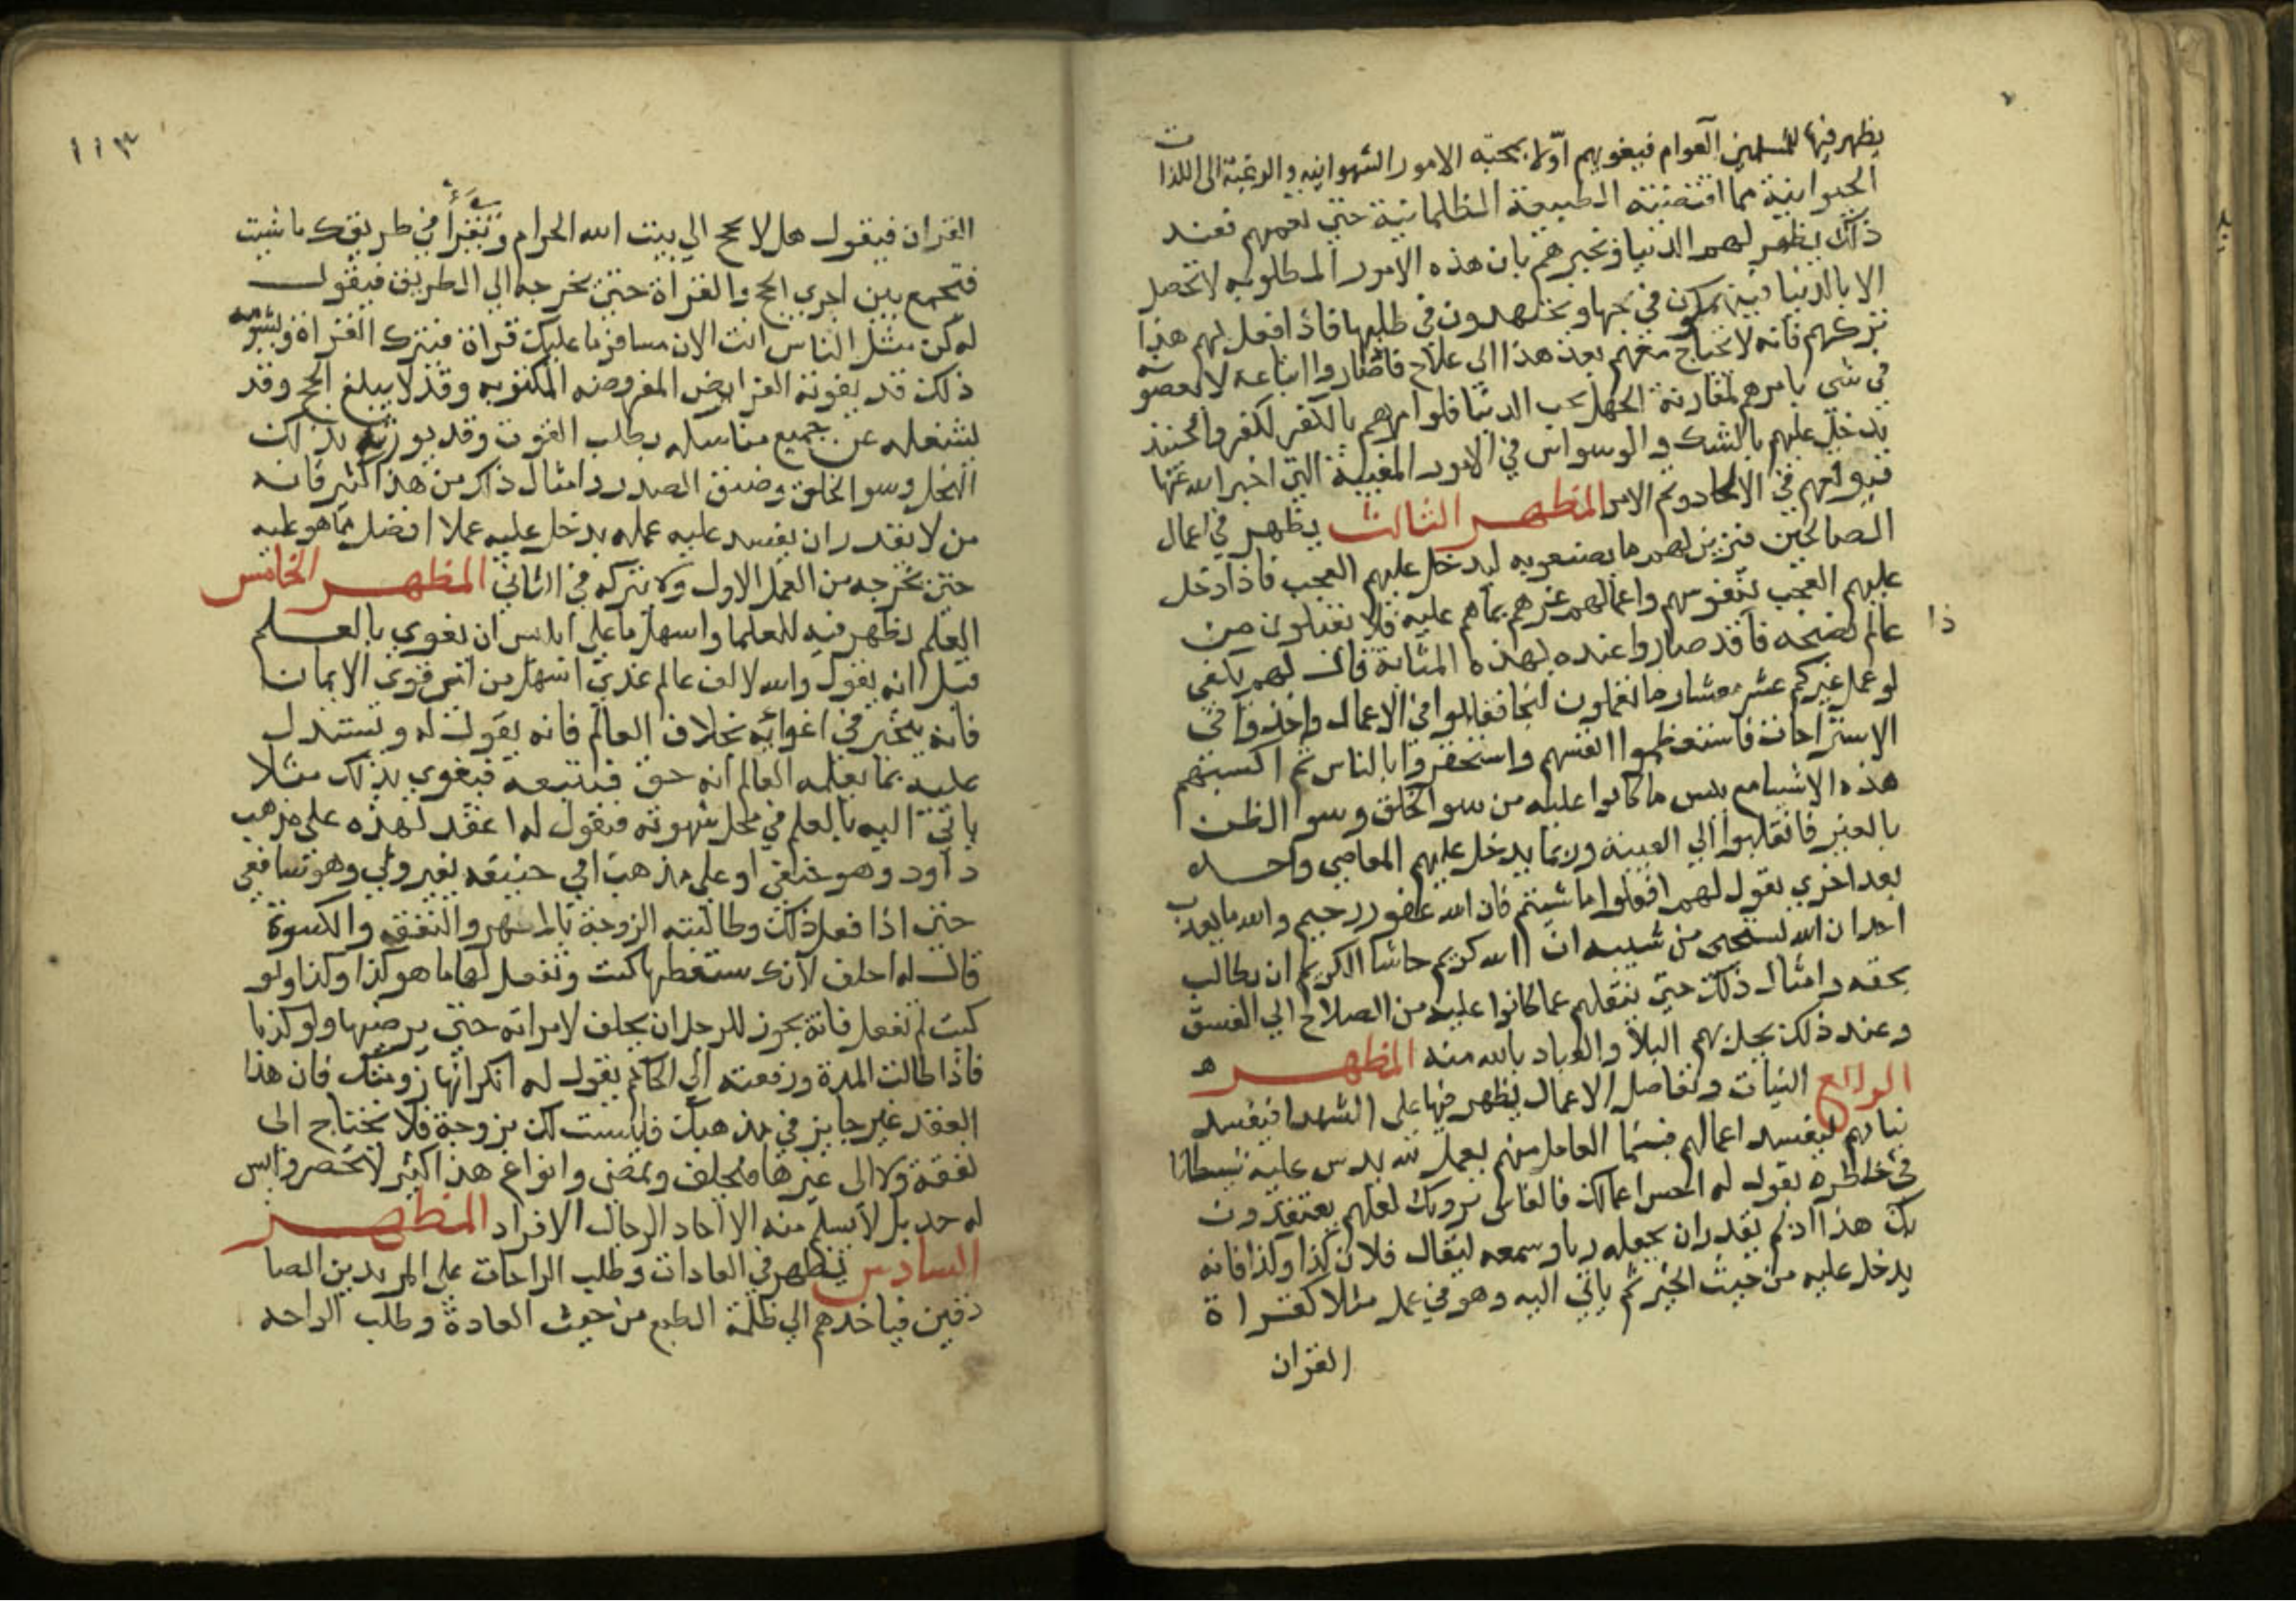 يظهر فيها للمسلمين العوام فيغويهم اولا بمحبة الامور الشهوانيه والرغبة الى اللذات
الحيوانية مما اقتضته الطبيعة الظلمانية حتى تعميهم فعند
ذلك يظهر لهم الدنيا ويخبرهم بان هذه الامور المطلوبه لا تحصل
الا بالدنيا فينهمكون في حبها ويجتهدون في طلبها فاذا فعل بهم هذا
تركهم فانه لا يحتاج معهم بعد هذا الى علاج فاذا صاروا اتباعه لا يعصونه
في شى يامرهم لمقارنة الجهل بحب الدنيا فلو امرهم بالكفر لكفروا فحينئذ
يدخل عليهم بالشك والوسواس في الامور المغيبة التي اخبر الله عنها
فيوقعهم في الالحاد وتم الامر المظهر الثالث يظهر في اعمال
الصالحين فيزين لهم ما يصنعونه ليدخل عليهم العجب فاذا دخل
عليهم العجب بنفوسهم واعمالهم غرهم بما هم عليه فلا يقبلون من
عالم نصيحه فاذا قد صاروا عنده بهذه المثابة قال لهم يكفي
لو عمل غيركم عشر معشار ما تعملون لنجا فقللوا في الاعمال واخذوا في
الاستراحات فاستعظموا انفسهم واستخفروا بالناس ثم اكسبتهم
هذه الاشيا مع بئس ما كانوا عليه من سو الخلق وسو الظن
بالغير فانقلبوا الي الغيبة وربما يدخل عليهم المعاصي واحده
بعد اخري يقول لهم افعلوا ما شيتم فان الله غفور رحيم والله ما يعذب
احدا ان الله ليستحي من شيبه ان الله كريم حاشا الكريم ان يطالب
بحقه وامثال ذلك حتى ينقلهم عما كانوا عليه من الصلاح الي الفسق
وعند ذلك يحل بهم البلا والعياذ بالله منه المظهر
الرابع النيات وتفاصل الاعمال يظهر فيها على الشهدا فيفسد
نياتهم ليفسد اعمالهم فبينما العامل منهم يعمل لله يدس عليه شيطانا
في خاطره يقول له احسن اعمالك فالناس يرونك لعلهم يعتقدون
بك هذا اذ لم يقدر ان يجعله ريا وسمعه ليقال فلان كذا وكذا فانه
يدخل عليه من حيث الخير ثم ياتي اليه وهو في عمل مثلا كقراة
القران
١١٣
القران فيقول هل لا تحج الي بيت الله الحرام وتقرأ في طريقك ما شيت
فتجمع بين اجري الحج والقراة حتى يخرجه الي الطريق فيقول
له كن مثل الناس انت الان مسافر ما عليك قراة فيترك القراة وبشومه
ذلك قد يفوته الفرايض المفروضه المكتوبه وقد لا يبلغ الحج وقد
يشغله عن جميع مناسكه بطلب القوت وقد يورثه بذلك
البخل وسو الخلق وضيق الصدر وامثال ذلك من هذا كثير فانه
من لا يقدر ان يفسد عليه عمله يدخل عليه عملا افضل مما هو عليه
حتى يخرجه من العمل الاول ولا يتركه في الثاني المظهر الخامس
العلم يظهر فيه للعلما واسهل ما على ابليس ان يغوي بالعلم
قيل انه يقول والله لالف عالم عندي اسهل من امي قوي الايمان
فانه يتحير في اغوائه بخلاف العالم فانه يقول له ويستدل
عليه بما يعلمه العالم انه حق فيتبعه فيغوي بذلك مثلا
ياتي اليه بالعلم في محل شهوته فيقول له اعقد لهذه على مذهب
داود وهو حنفي او على مذهب ابي حنيفه بغير ولي وهو شافعي
حتى اذا فعل ذلك وطالبته الزوجة بالمهر والنفقه والكسوة
قال له احلف لانك ستعطيها كيت وتفعل لها ما هو كذا وكذا ولو
كنت لم تفعل فانه يجوز للرجل ان يحلف لامراته حتى يرضيها ولو كذبا
فاذا طالت المدة ورفعته الي الحاكم يقول له انكر انها زوجتك فان هذا
العقد غير جايز في مذهبك فليست لك بزوجة فلا تحتاج الى
نفقة ولا الى غيرها فيحلف ويمضي وانواع هذا كثير لا تحصر وليس
له حد بل لا يسلم منه الا احاد الرجال الافراد المظهر
السادس يظهر في العادات وطلب الراحات على المريدين الصا
دقين فياخذهم الي ظلمة الطبع من حيث العادة وطلب الراحه